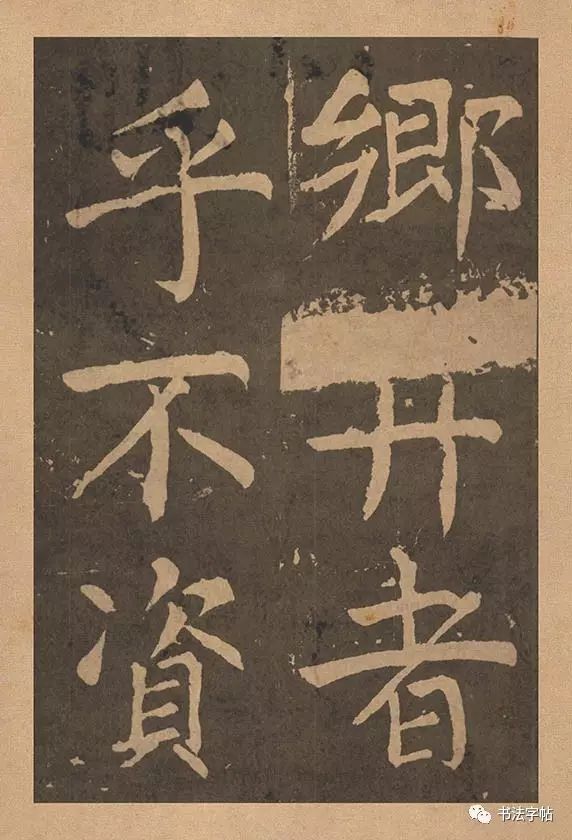 鄉者
乎不資
书法字帖